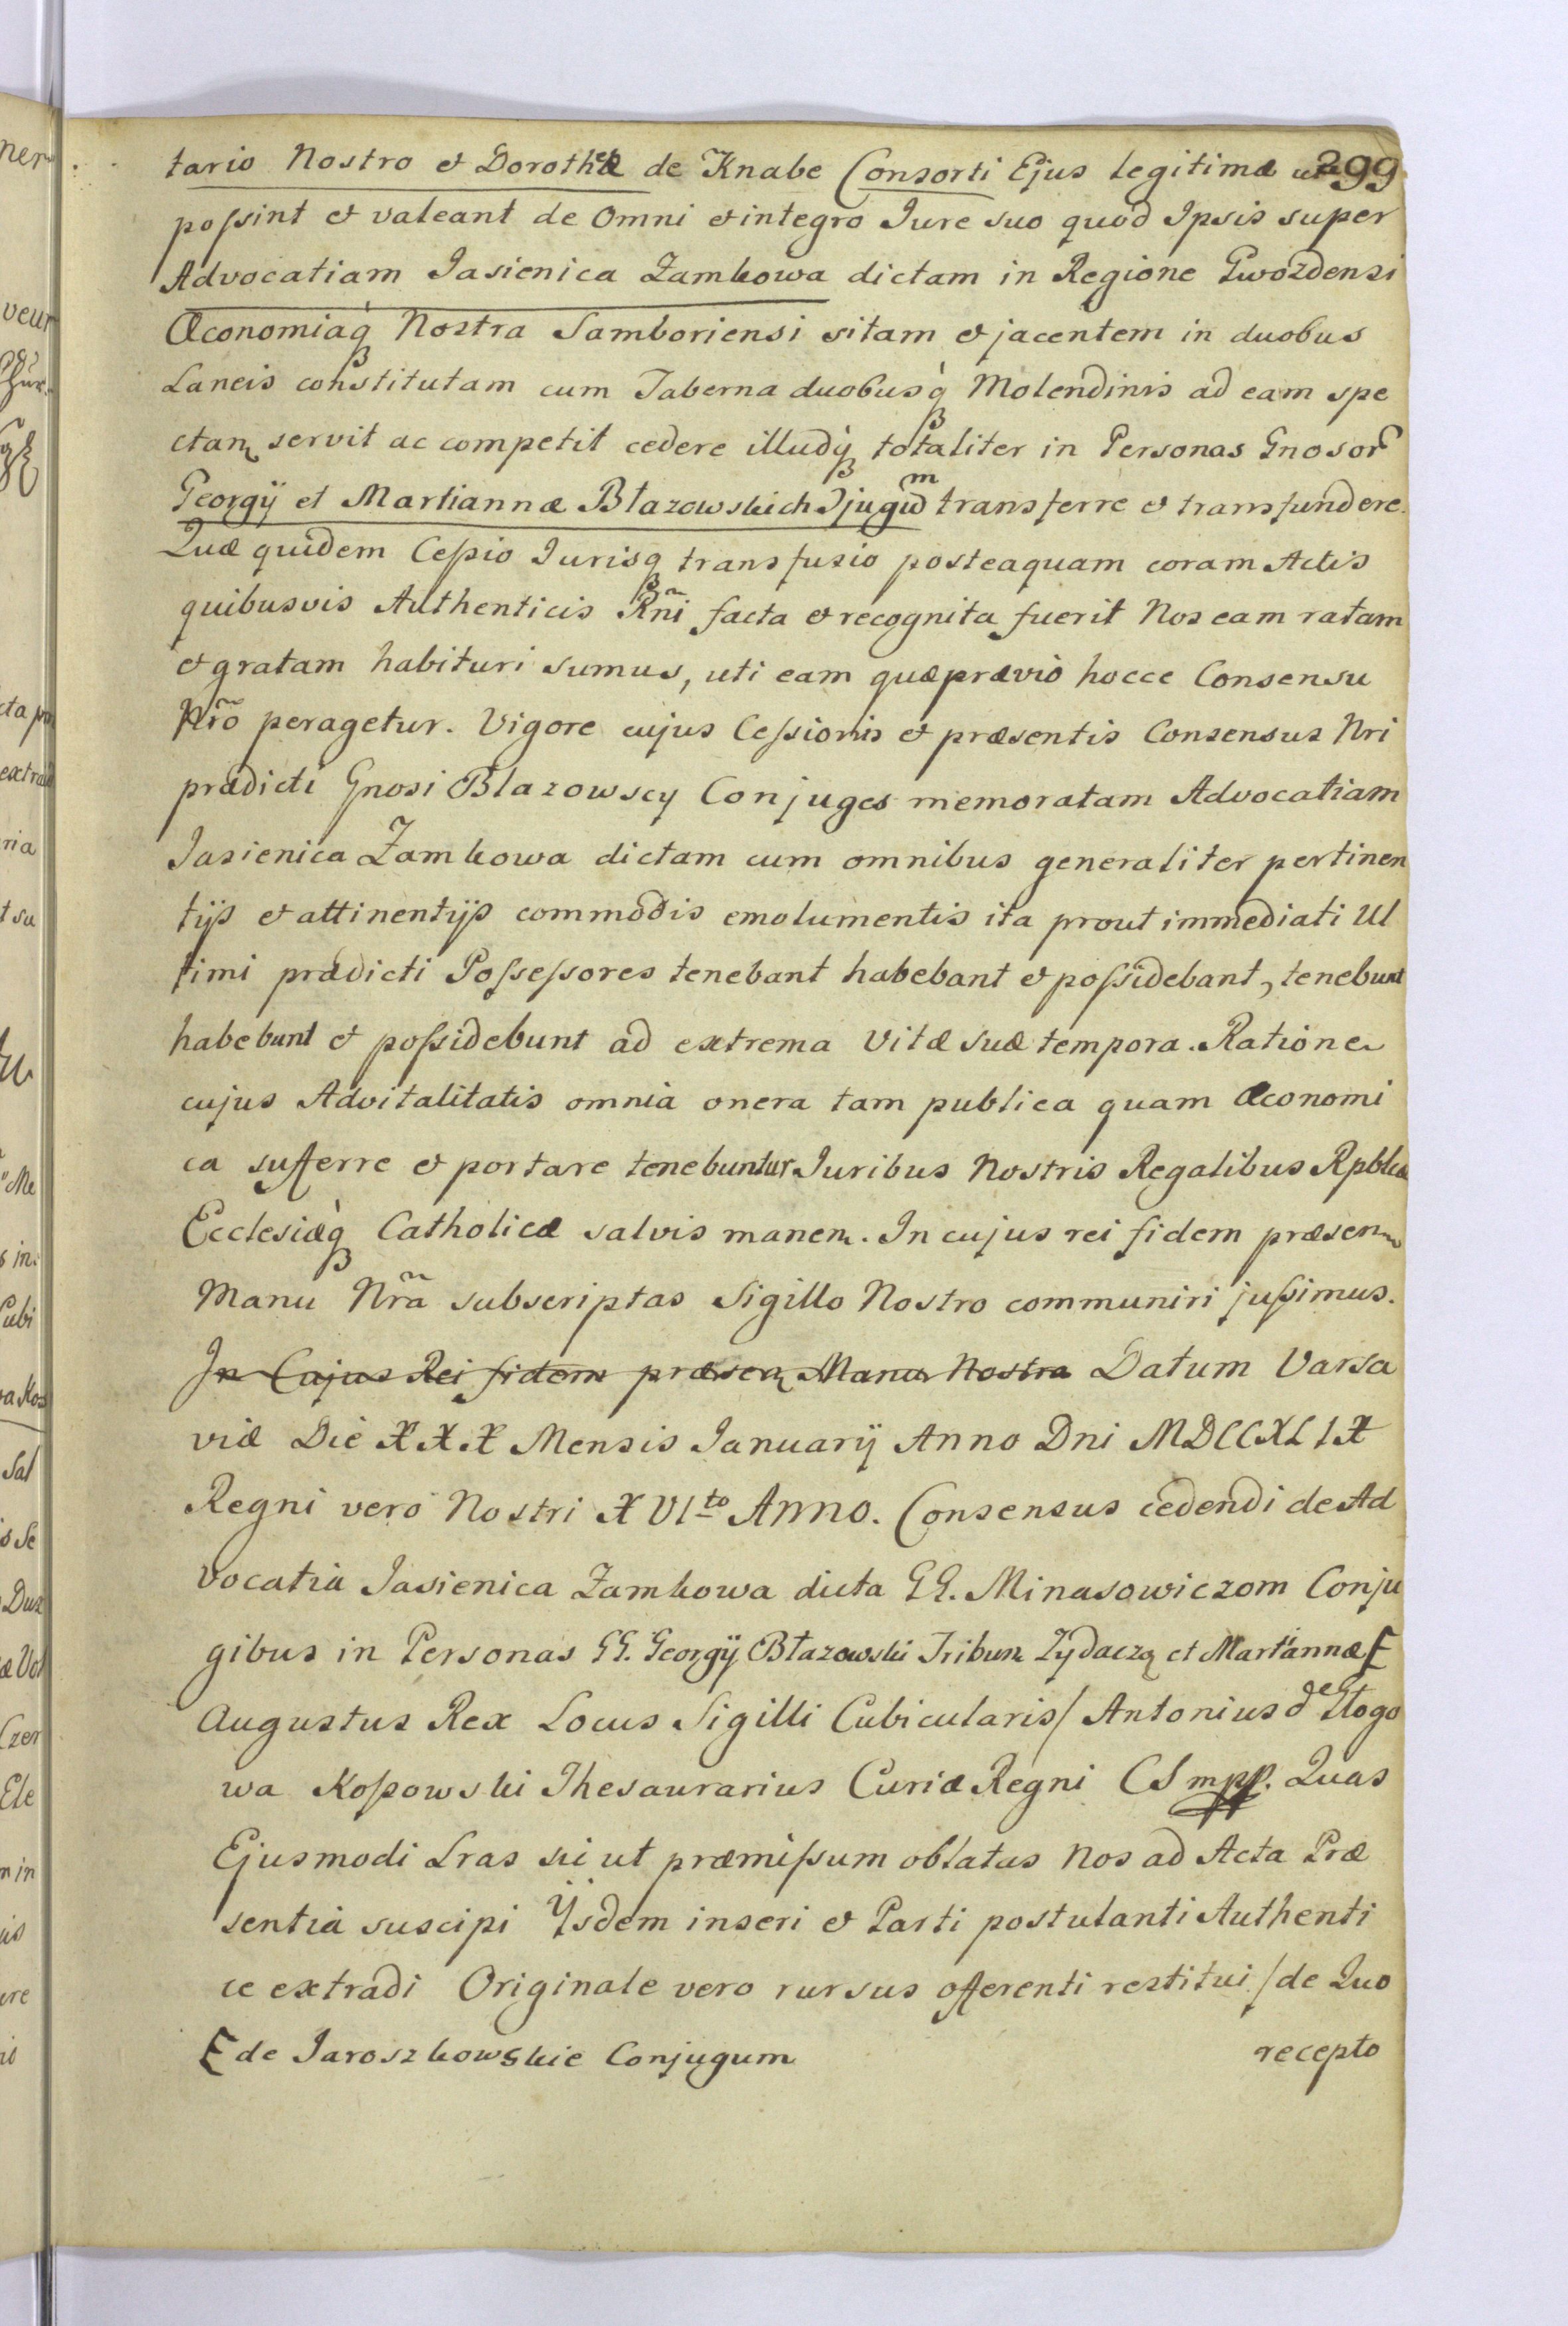 299
tario Nostro et Dorotheæ de Knabe Consorti Ejus legitimæ ut
poſsint et valeant de Omni et integro Jure suo quod Ipsis super
Advocatiam Jasienica Zamkowa dictam in Regione Gwozdensi
Œconomiaq́ Nostra Samboriensi sitam et jacentem in duobus
Laneis constitutam cum Taberna duobusq́ Molendinis ad eam spe
ctan servit ac competit cedere illudq́ totaliter in Personas Gnosor
Georgÿ et Martiannæ Błazowskich Ɔjugum transferre et transfundere.
Quæ quidem Ceſsio Jurisq transfusio posteaquam coram Actis
quibusvis Authenticis Rñi facta et recognita fuerit Nos eam ratam
et gratam habituri sumus, uti eam quæ prævio hocce Consensu
Nrõ peragetur. Vigore cujus Ceſsionis et præsentis Consensus Nri
prædicti Gnosi Blazowscy Conjuges memoratam Advocatiam
Jasienica Zamkowa dictam cum omnibus generaliter pertinen
tÿs et attinentÿs commodis emolumentis ita prout immediati Ul
timi prædicti Poſseſsores tenebant habebant et poſsidebant, tenebunt
habebunt et poſsidebunt ad extrema Vitæ suæ tempora. Ratione
cujus Advitalitatis omnia onera tam publica quam Œconomi
ca sufferre et portare tenebuntur Juribus Nostris Regalibus Rpblcæ
Ecclesiæq́ Catholicæ salvis manen. In cujus rei fidem præsen
Manu Nrã subscriptas Sigillo Nostro communiri juſsimus.
In Cujus Rei fidem præsen Manu Nostra Datum Varsa
viæ Die XXX Mensis Januarÿ Anno Dni MDCCXLIX
Regni vero Nostri XVIto Anno. Consensus cedendi de Ad
vocatia Jasienica Zamkowa dicta GG. Minasowiczom Conju
gibus in Personas GG. Georgÿ Błazowski Tribun Zydacz et Martiannæ
Augustus Rex Locus Sigilli Cubicularis/ Antonius de Głogo
wa Koſsowski Thesaurarius Curiæ Regni CS mpp. Quas
Ejusmodi Lras sic ut præmiſsum oblatas Nos ad Acta Præ
sentia suscipi Ÿsdem inseri et Parti postulanti Authenti
ce extradi Originale vero rursus offerenti restitui / de Quo
de Jaroszkowskie Conjugum
recepto